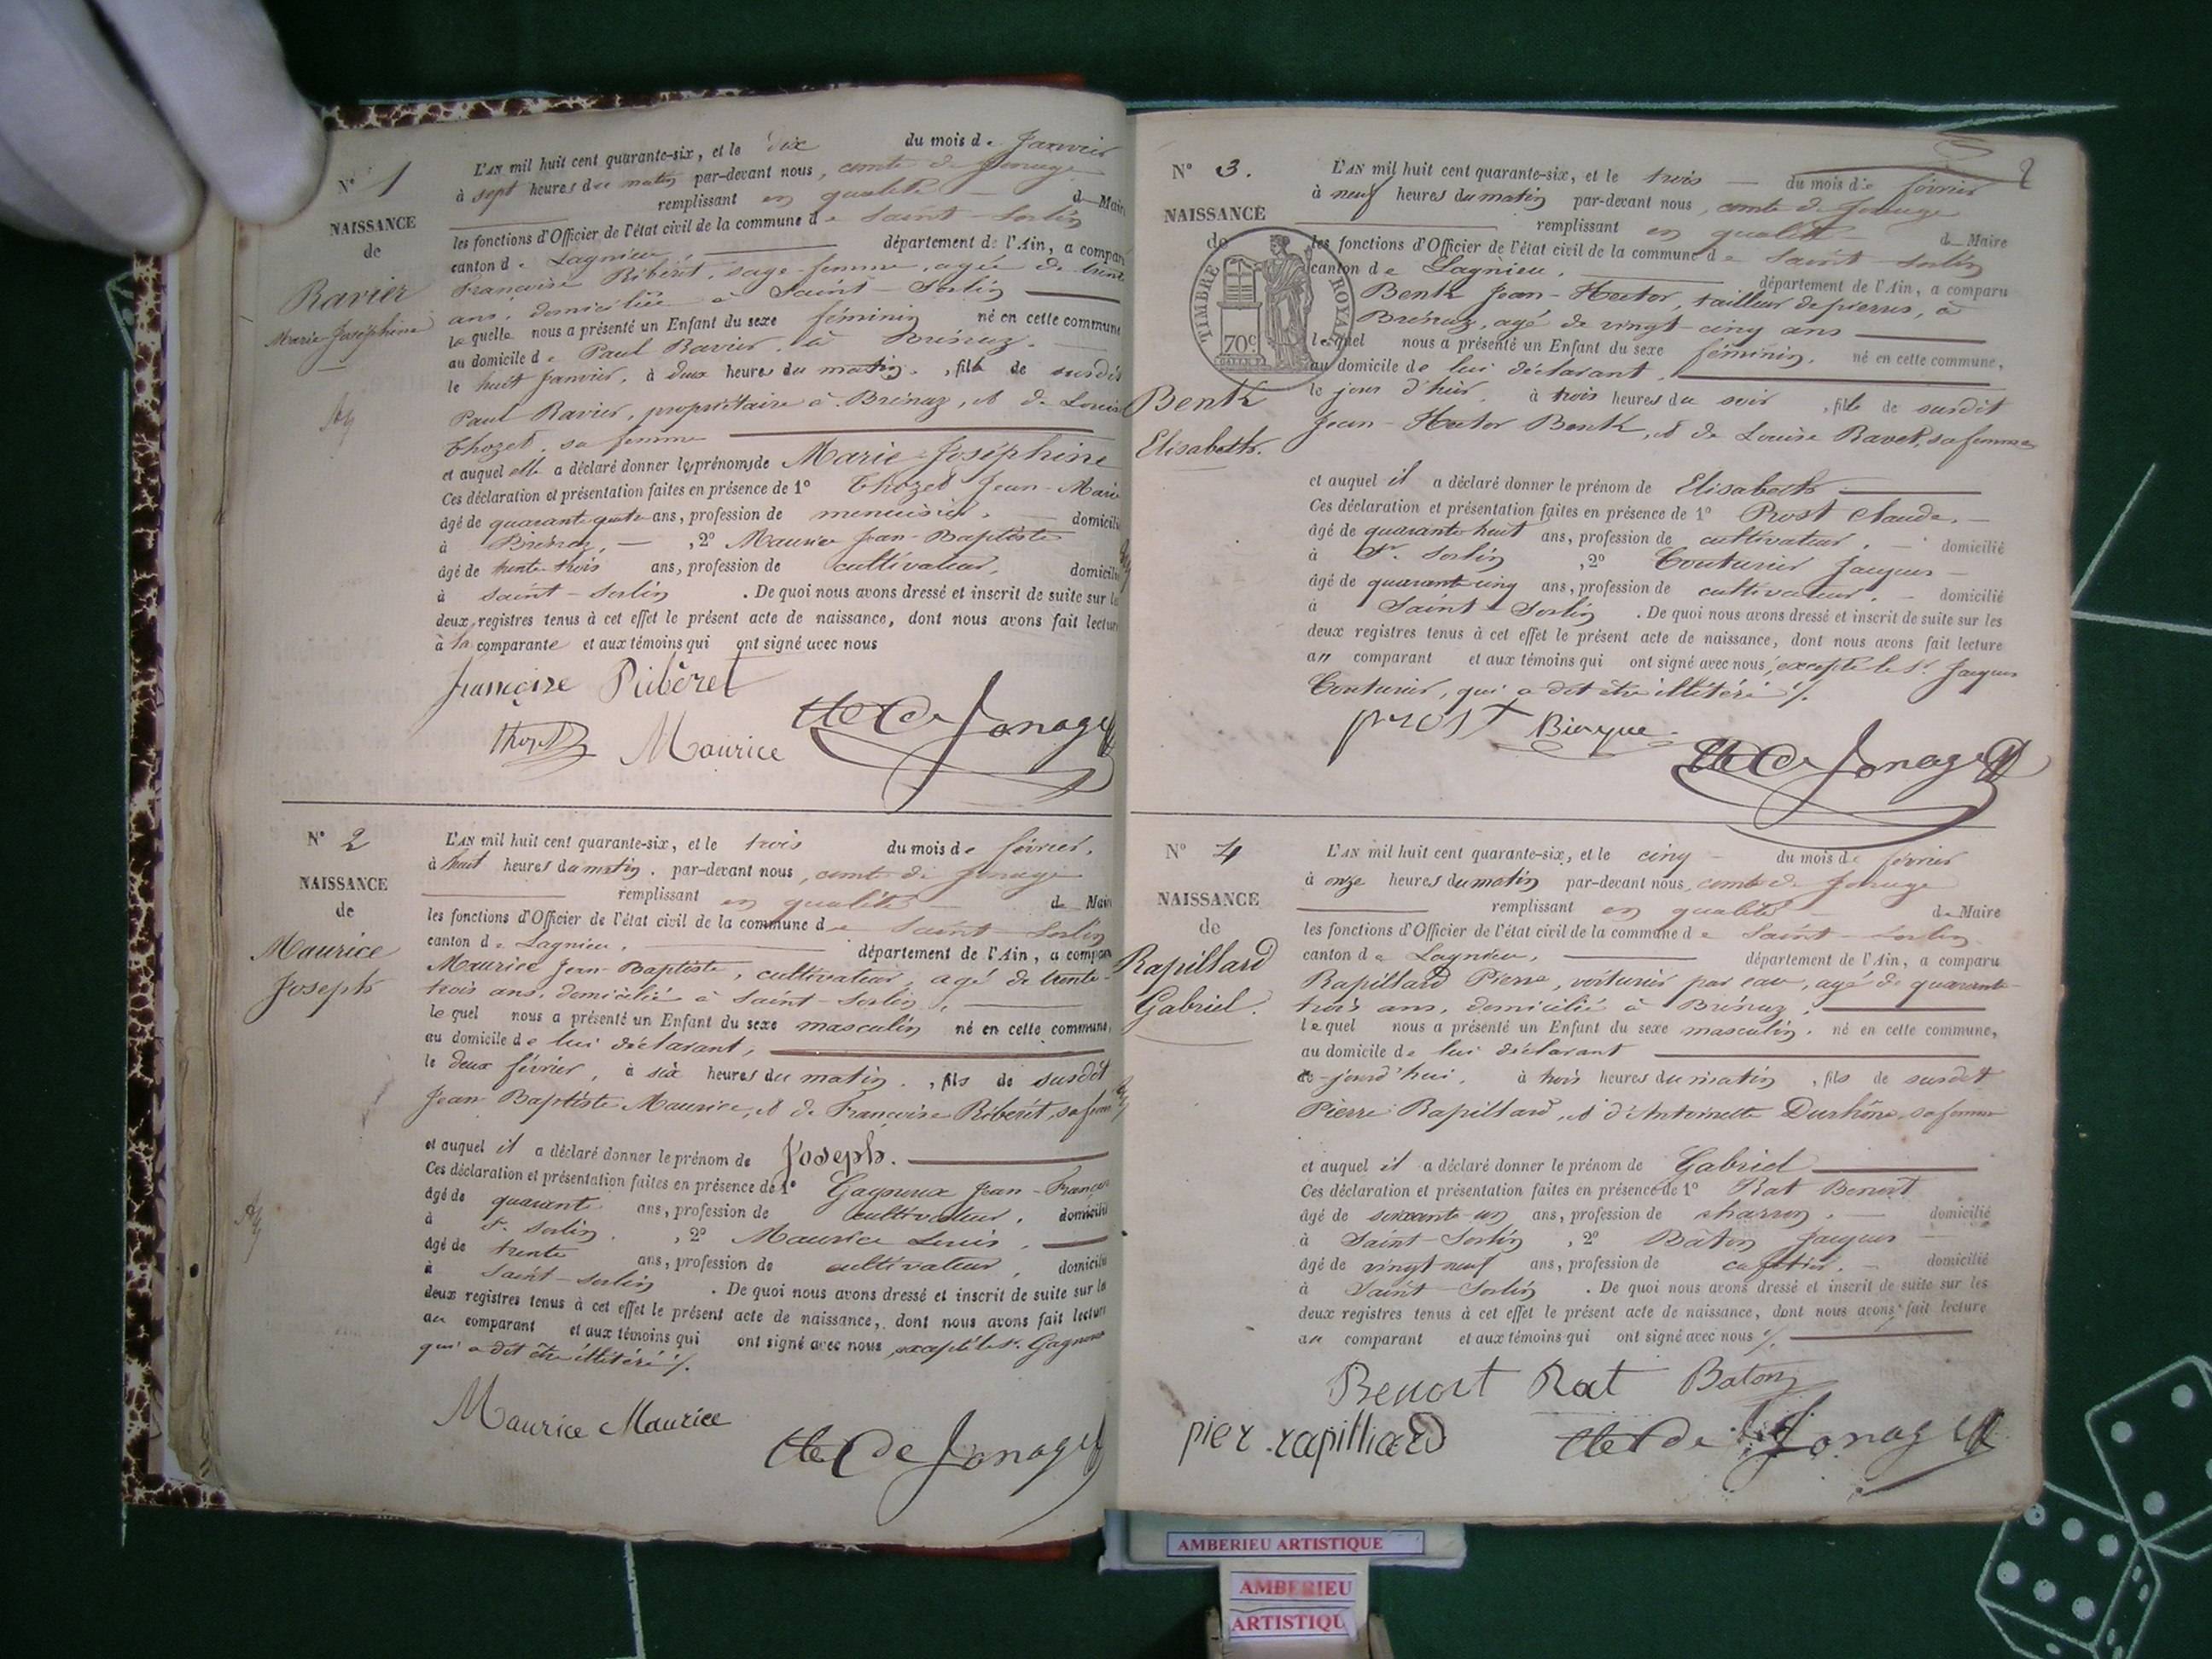 N° 1
NAISSANCE
de
Ravier
Marie-Joséphine
L'AN mil huit cent quarante-six, et le dix du mois de Janvier
à sept heures du matin par-devant nous, comte de Jonage
remplissant en qualité de Maire
les fonctions d'Officier de l'état civil de la commune de Saint-Sorlin
canton de Lagnieu, département de l'Ain, a comparu
Françoise Ribéret, sage-femme, agée de trente
ans, domiciliée à Saint-Sorlin
laquelle nous a présenté un Enfant du sexe féminin né en cette commune
au domicile de Paul Ravier, à Brénaz.
le huit Janvier, à deux heures du matin, fille de susdit
Paul Ravier, propriétaire à Brénaz, et de Louise
Thozet, sa femme
et auquel elle a déclaré donner les prénoms de Marie-Joséphine
Ces déclaration et présentation faites en présence de 1° Thozet Jean-Marie
âgé de quarante quatre ans, profession de menuisier, domicilié
à Brénaz, 2° Maurice Jean-Baptiste
âgé de trente trois ans, profession de cultivateur, domicilié
à saint-Sorlin. De quoi nous avons dressé et inscrit de suite sur les
deux registres tenus à cet effet le présent acte de naissance, dont nous avons fait lecture
à la comparante et aux témoins qui ont signé avec nous
françoise Ribéret
Thozet Maurice Cte De Jonage
N° 2
NAISSANCE
de
Maurice
Joseph
L'AN mil huit cent quarante-six, et le trois du mois de février,
à huit heures du matin, par-devant nous, comte de Jonage
remplissant en qualité de Maire
les fonctions d'Officier de l'état civil de la commune de Saint-Sorlin
canton de Lagnieu, département de l'Ain, a comparu
Maurice Jean-Baptiste, cultivateur, agé de trente-
trois ans, domicilié à Saint-Sorlin,
lequel nous a présenté un Enfant du sexe masculin né en cette commune,
au domicile de lui déclarant,
le deux février, à six heures du matin, fils de susdit
Jean-Baptiste Maurice, et de Françoise Ribéret, sa femme
et auquel il a déclaré donner le prénom de Joseph.
Ces déclaration et présentation faites en présence de 1° Gagneux Jean-François
âgé de quarante ans, profession de cultivateur, domicilié
à St. Sorlin, 2° Maurice Louis,
âgé de trente ans, profession de cultivateur, domicilié
à Saint-Sorlin. De quoi nous avons dressé et inscrit de suite sur les
deux registres tenus à cet effet le présent acte de naissance, dont nous avons fait lecture
au comparant et aux témoins qui ont signé avec nous, excepté le Sr. Gagneux
qui a dit être illitéré ./.
Maurice Maurice
Cte De Jonage
2
N° 3.
NAISSANCE
de
TIMBRE ROYAL
70c
Bentz
Elisabeth.
L'AN mil huit cent quarante-six, et le trois du mois de février
à neuf heures du matin par-devant nous, comte de Jonage
remplissant en qualité de Maire
les fonctions d'Officier de l'état civil de la commune de Saint-Sorlin
canton de Lagnieu, département de l'Ain, a comparu
Bentz Jean-Hector, tailleur de pierres, à
Brénaz, agé de vingt-cinq ans
lequel nous a présenté un Enfant du sexe féminin, né en cette commune,
au domicile de lui déclarant,
le jour d'hier, à trois heures du soir, fille de susdit
Jean-Hector Bentz, et de Louise Ravet, sa femme
et auquel il a déclaré donner le prénom de Elisabeth
Ces déclaration et présentation faites en présence de 1° Prost Claude,
âgé de quarante huit ans, profession de cultivateur, domicilié
à St. Sorlin, 2° Couturier Jacques
âgé de quarante cinq ans, profession de cultivateur, domicilié
à Saint-Sorlin. De quoi nous avons dressé et inscrit de suite sur les
deux registres tenus à cet effet le présent acte de naissance, dont nous avons fait lecture
au comparant et aux témoins qui ont signé avec nous, excepté le Sr. Jacques
Couturier, qui a dit être illitéré ./.
prost
Cte De Jonage
N° 4
NAISSANCE
de
Rapillard
Gabriel.
L'AN mil huit cent quarante-six, et le cinq du mois de février
à onze heures du matin par-devant nous, comte de Jonage
remplissant en qualité de Maire
les fonctions d'Officier de l'état civil de la commune de Saint-Sorlin
canton de Lagnieu, département de l'Ain, a comparu
Rapillard Pierre, voiturier par eau, agé de quarante-
trois ans, domicilié à Brénaz,
lequel nous a présenté un Enfant du sexe masculin, né en cette commune,
au domicile de lui déclarant
ce jourd'hui, à trois heures du matin, fils de susdit
Pierre Rapillard, et d'Antoinette Durhône, sa femme
et auquel il a déclaré donner le prénom de Gabriel
Ces déclaration et présentation faites en présence de 1° Rat Benoit
âgé de soixante-un ans, profession de charron, domicilié
à Saint-Sorlin, 2° Baton Jacques
âgé de vingt-neuf ans, profession de cafetier, domicilié
à Saint-Sorlin. De quoi nous avons dressé et inscrit de suite sur les
deux registres tenus à cet effet le présent acte de naissance, dont nous avons fait lecture
au comparant et aux témoins qui ont signé avec nous ./.
Benoit Rat Baton
pier rapilliard Cte De Jonage
AMBERIEU ARTISTIQUE
AMBERIEU
ARTISTIQU